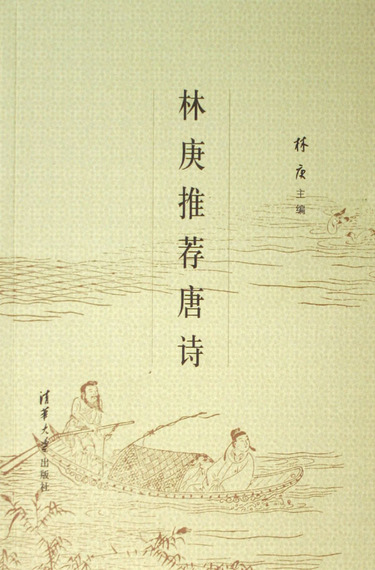 林庚推荐唐诗
林庚 主编
清华大学出版社